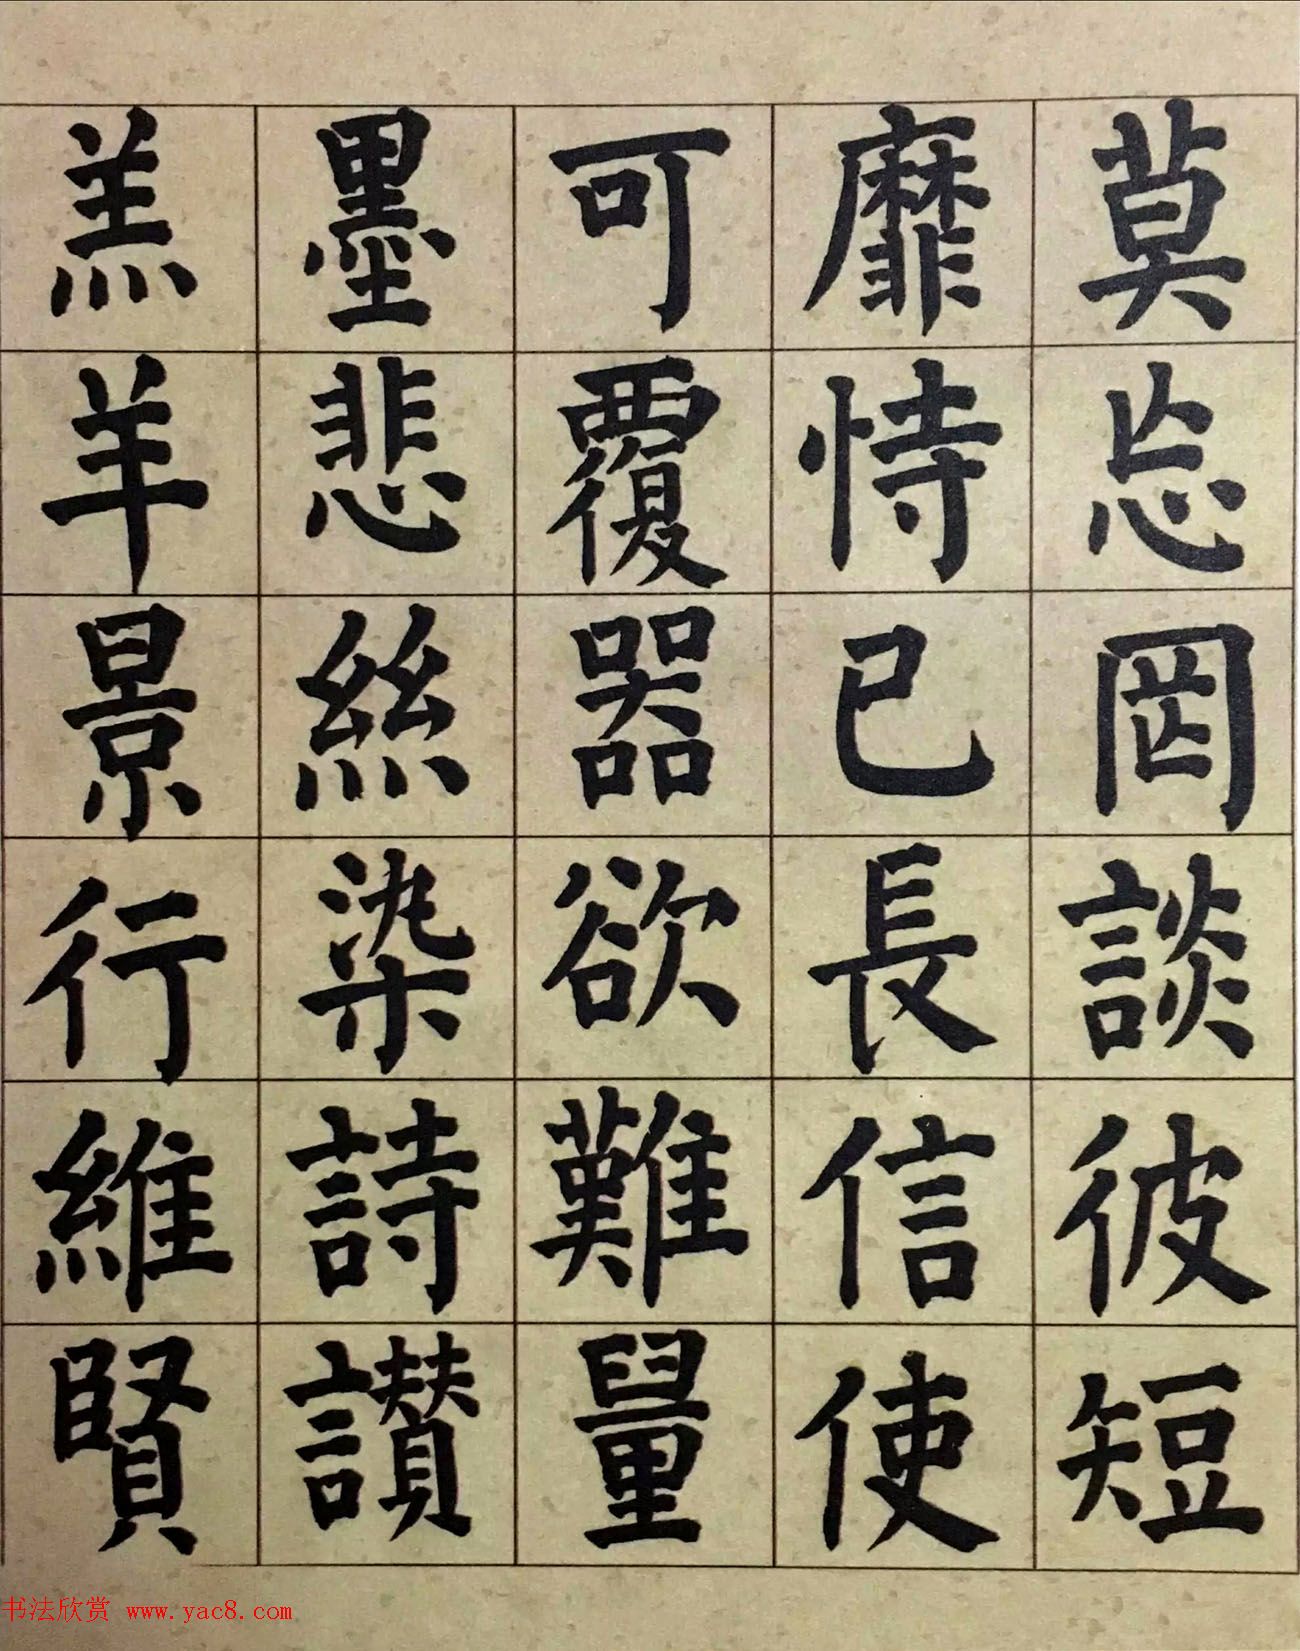 莫忘罔談彼短
靡恃己長信使
可覆器欲難量
墨悲絲染詩讚
羔羊景行維賢
书法欣赏 www.yac8.com